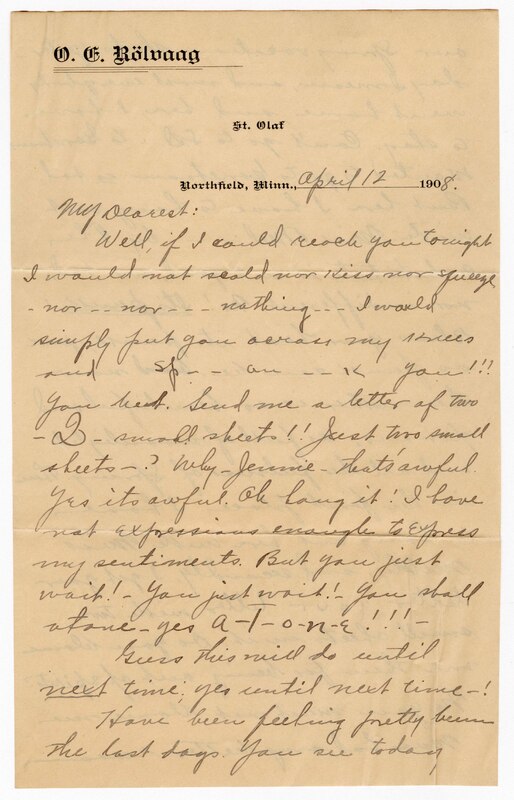 O. E. Rölvaag
St. Olaf
Northfield, Minn., April 12 1908.
My Dearest:
Well, if I could reach you tonight
I would not scold nor kiss nor squeeze
- nor -- nor --- nothing --- I would
simply put you across my knees
and sp -- an -- k you!!!
You bet. Send me a letter of two
- 2 - small sheets!! Just two small
sheets -? Why - Jennie - that's awful.
Yes its awful. Oh hang it! I have
not expressions enough to express
my sentiments. But you just
wait! - You just wait! - You shall
atone - yes a-T-o-n-e!!!! -
Guess this will do until
next time; yes until next time -!
Have been feeling pretty bum
the last days. You see today